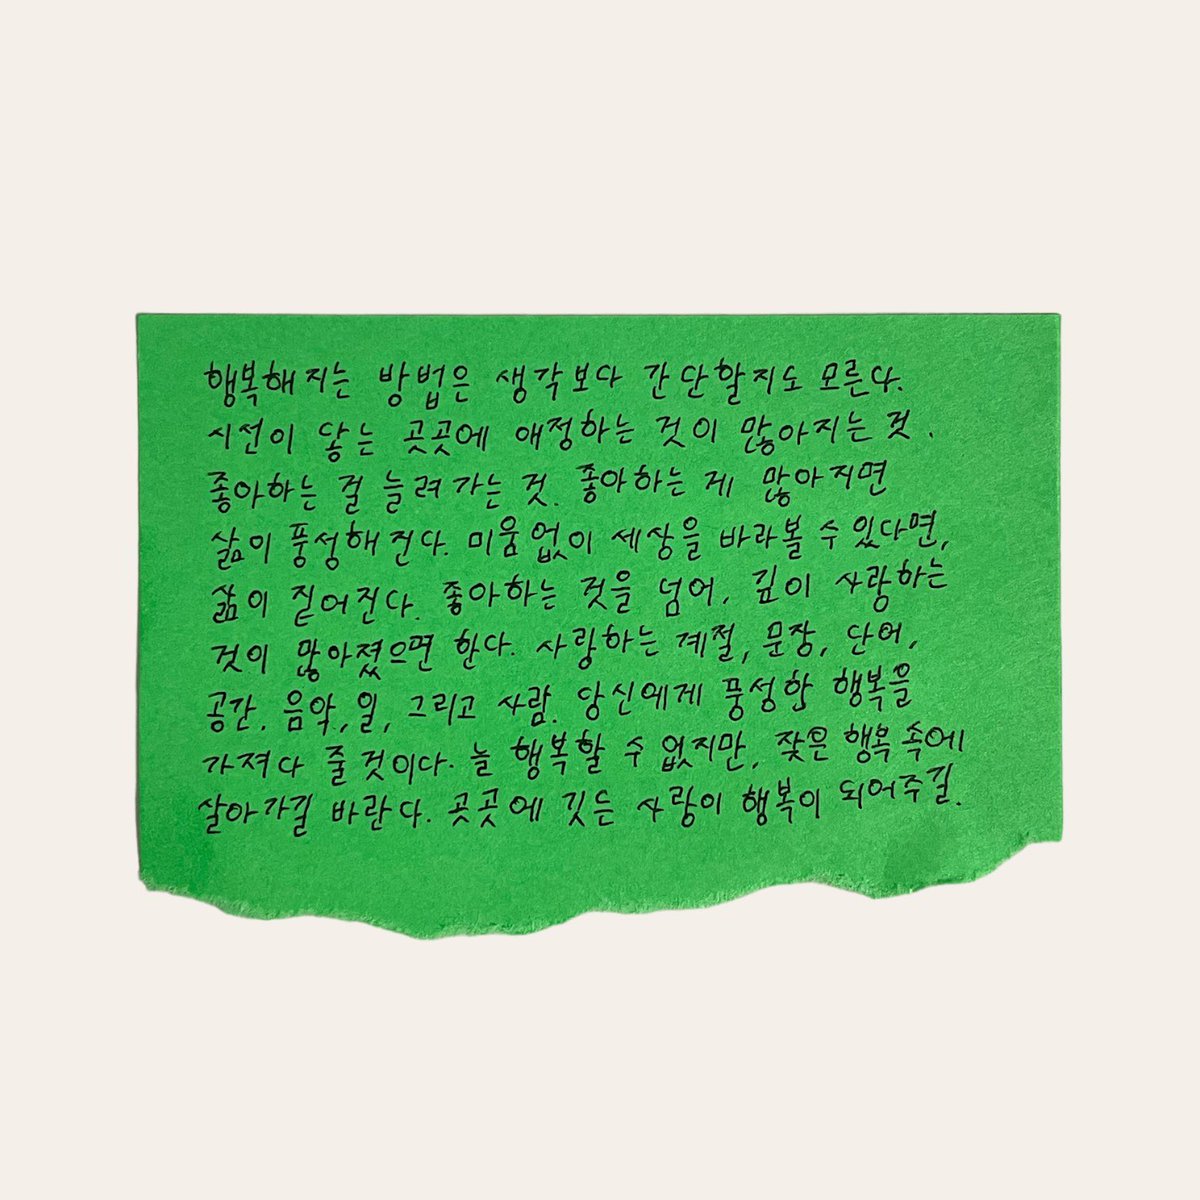 행복해지는 방법은 생각보다 간단할지도 모른다.
시선이 닿는 곳곳에 애정하는 것이 많아지는 것.
좋아하는 걸 늘려가는 것. 좋아하는 게 많아지면
삶이 풍성해진다. 미움없이 세상을 바라볼 수 있다면,
삶이 짙어진다. 좋아하는 것을 넘어, 깊이 사랑하는
것이 많아졌으면 한다. 사랑하는 계절, 문장, 단어,
공간, 음악, 일, 그리고 사람. 당신에게 풍성한 행복을
가져다 줄 것이다. 늘 행복할 수 없지만, 잦은 행복 속에
살아가길 바란다. 곳곳에 깃든 사랑이 행복이 되어주길.